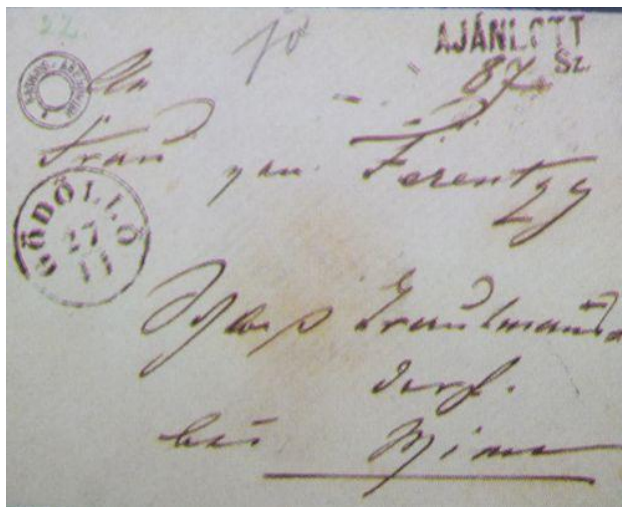 22.
AJÁNLOTT
87 Sz.
An
Frau von Ferentzy
GÖDÖLLŐ
27
11
Schloß Trautmanns
dorf.
bei Wien